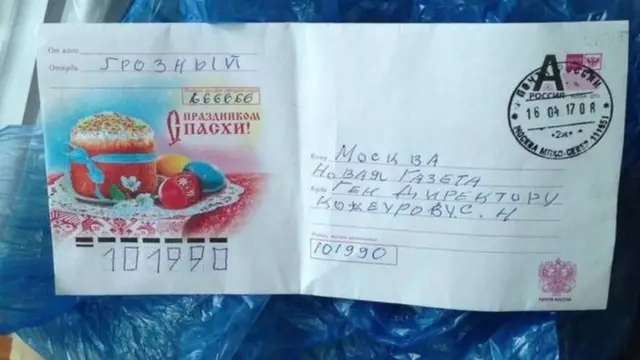 От кого
Откуда ГРОЗНЫЙ
666666
С ПРАЗДНИКОМ
ПАСХИ!
101990
А
РОССИЯ
ПОЧТА РОССИИ
16 04 17 08
Кому МОСКВА
НОВАЯ ГАЗЕТА
Куда ГЕН ДИРЕКТОРУ
КОЖЕУРОВУ С. Н
101990